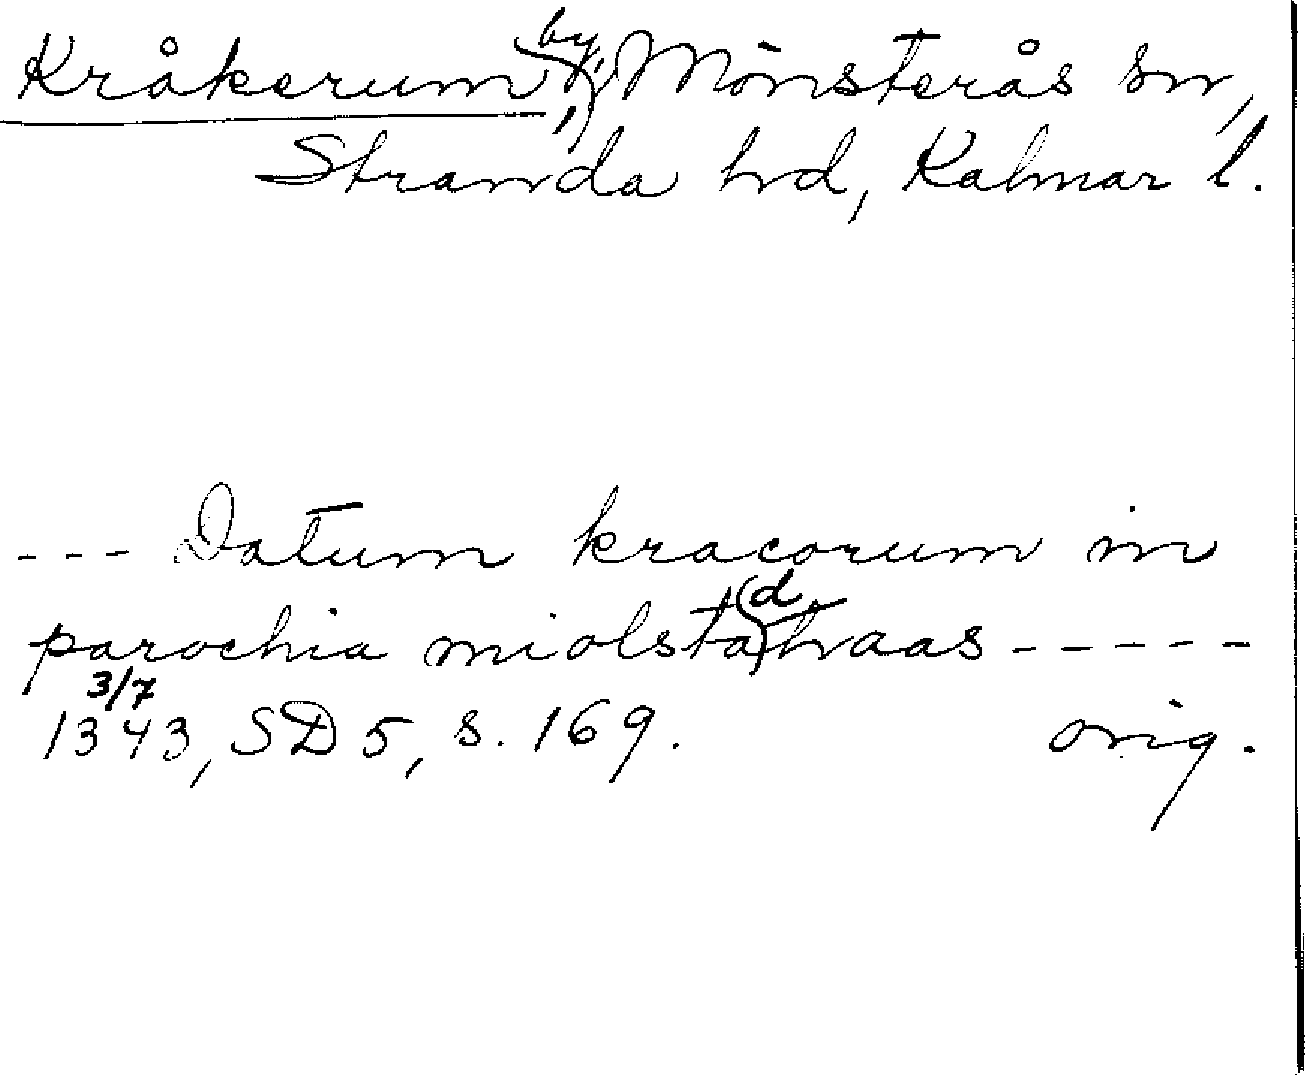 Kråkerum, by, Mönsterås sn,
Stranda hd, Kalmar l.
--- Datum kracorum in
parochia miolstadhaas -----
3/7 1343, SD 5, s. 169. orig.